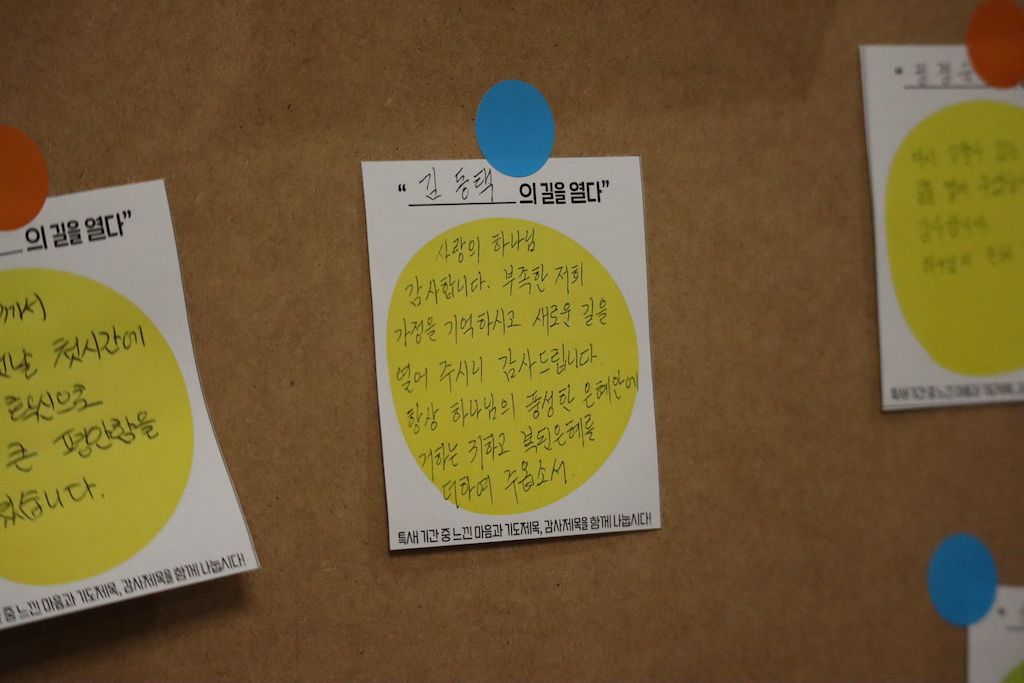 “ 김동택 의 길을 열다”
사랑의 하나님
감사합니다. 부족한 저희
가정을 기억하시고 새로운 길을
열어 주시니 감사드립니다.
항상 하나님의 풍성한 은혜안에
거하는 귀하고 복된은혜를
더하여 주옵소서.
특새 기간 중 느낀 마음과 기도제목, 감사제목을 함께 나눕시다!
의 길을 열다”
첫시간에
확신으로
큰 평안함을
셨습니다.
중 느낀 마음과 기도제목, 감사제목을 함께 나눕시다!
특새 기간 중 느낀 마음과 기도제목,